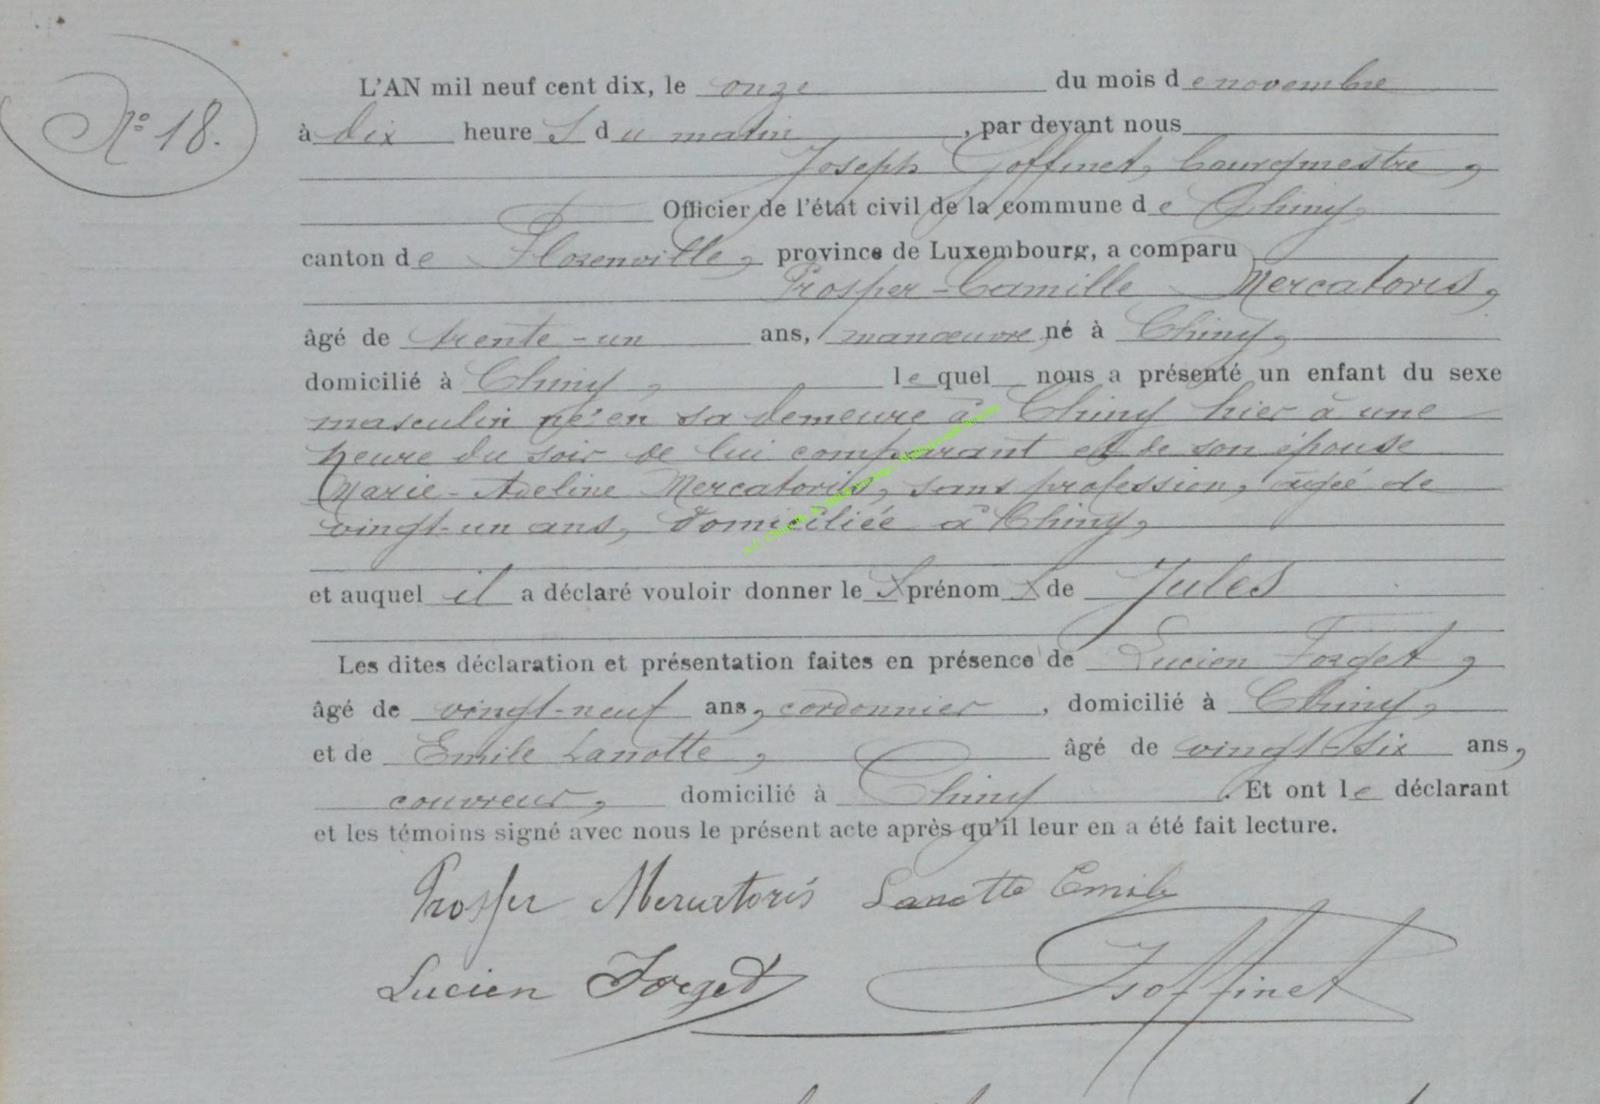 N° 18.
L'AN mil neuf cent dix, le onze du mois de novembre
à dix heures du matin, par devant nous
Joseph Goffinet, bourgmestre,
Officier de l'état civil de la commune de Chiny,
canton de Florenville, province de Luxembourg, a comparu
Prosper-Camille Mercatoris,
âgé de trente-un ans, manœuvre, né à Chiny,
domicilié à Chiny, lequel nous a présenté un enfant du sexe
masculin né en sa demeure à Chiny hier à une
heure du soir de lui comparant et de son épouse
Marie-Adeline Mercatoris, sans profession, âgée de
vingt-un ans, domiciliée à Chiny,
et auquel il a déclaré vouloir donner le prénom de Jules
Les dites déclaration et présentation faites en présence de Lucien Forget,
âgé de vingt-neuf ans, cordonnier, domicilié à Chiny,
et de Emile Lanotte, âgé de vingt-six ans,
couvreur, domicilié à Chiny. Et ont le déclarant
et les témoins signé avec nous le présent acte après qu'il leur en a été fait lecture.
Prosper Mercatoris Lanotte Emile
Lucien Forget JGoffinet